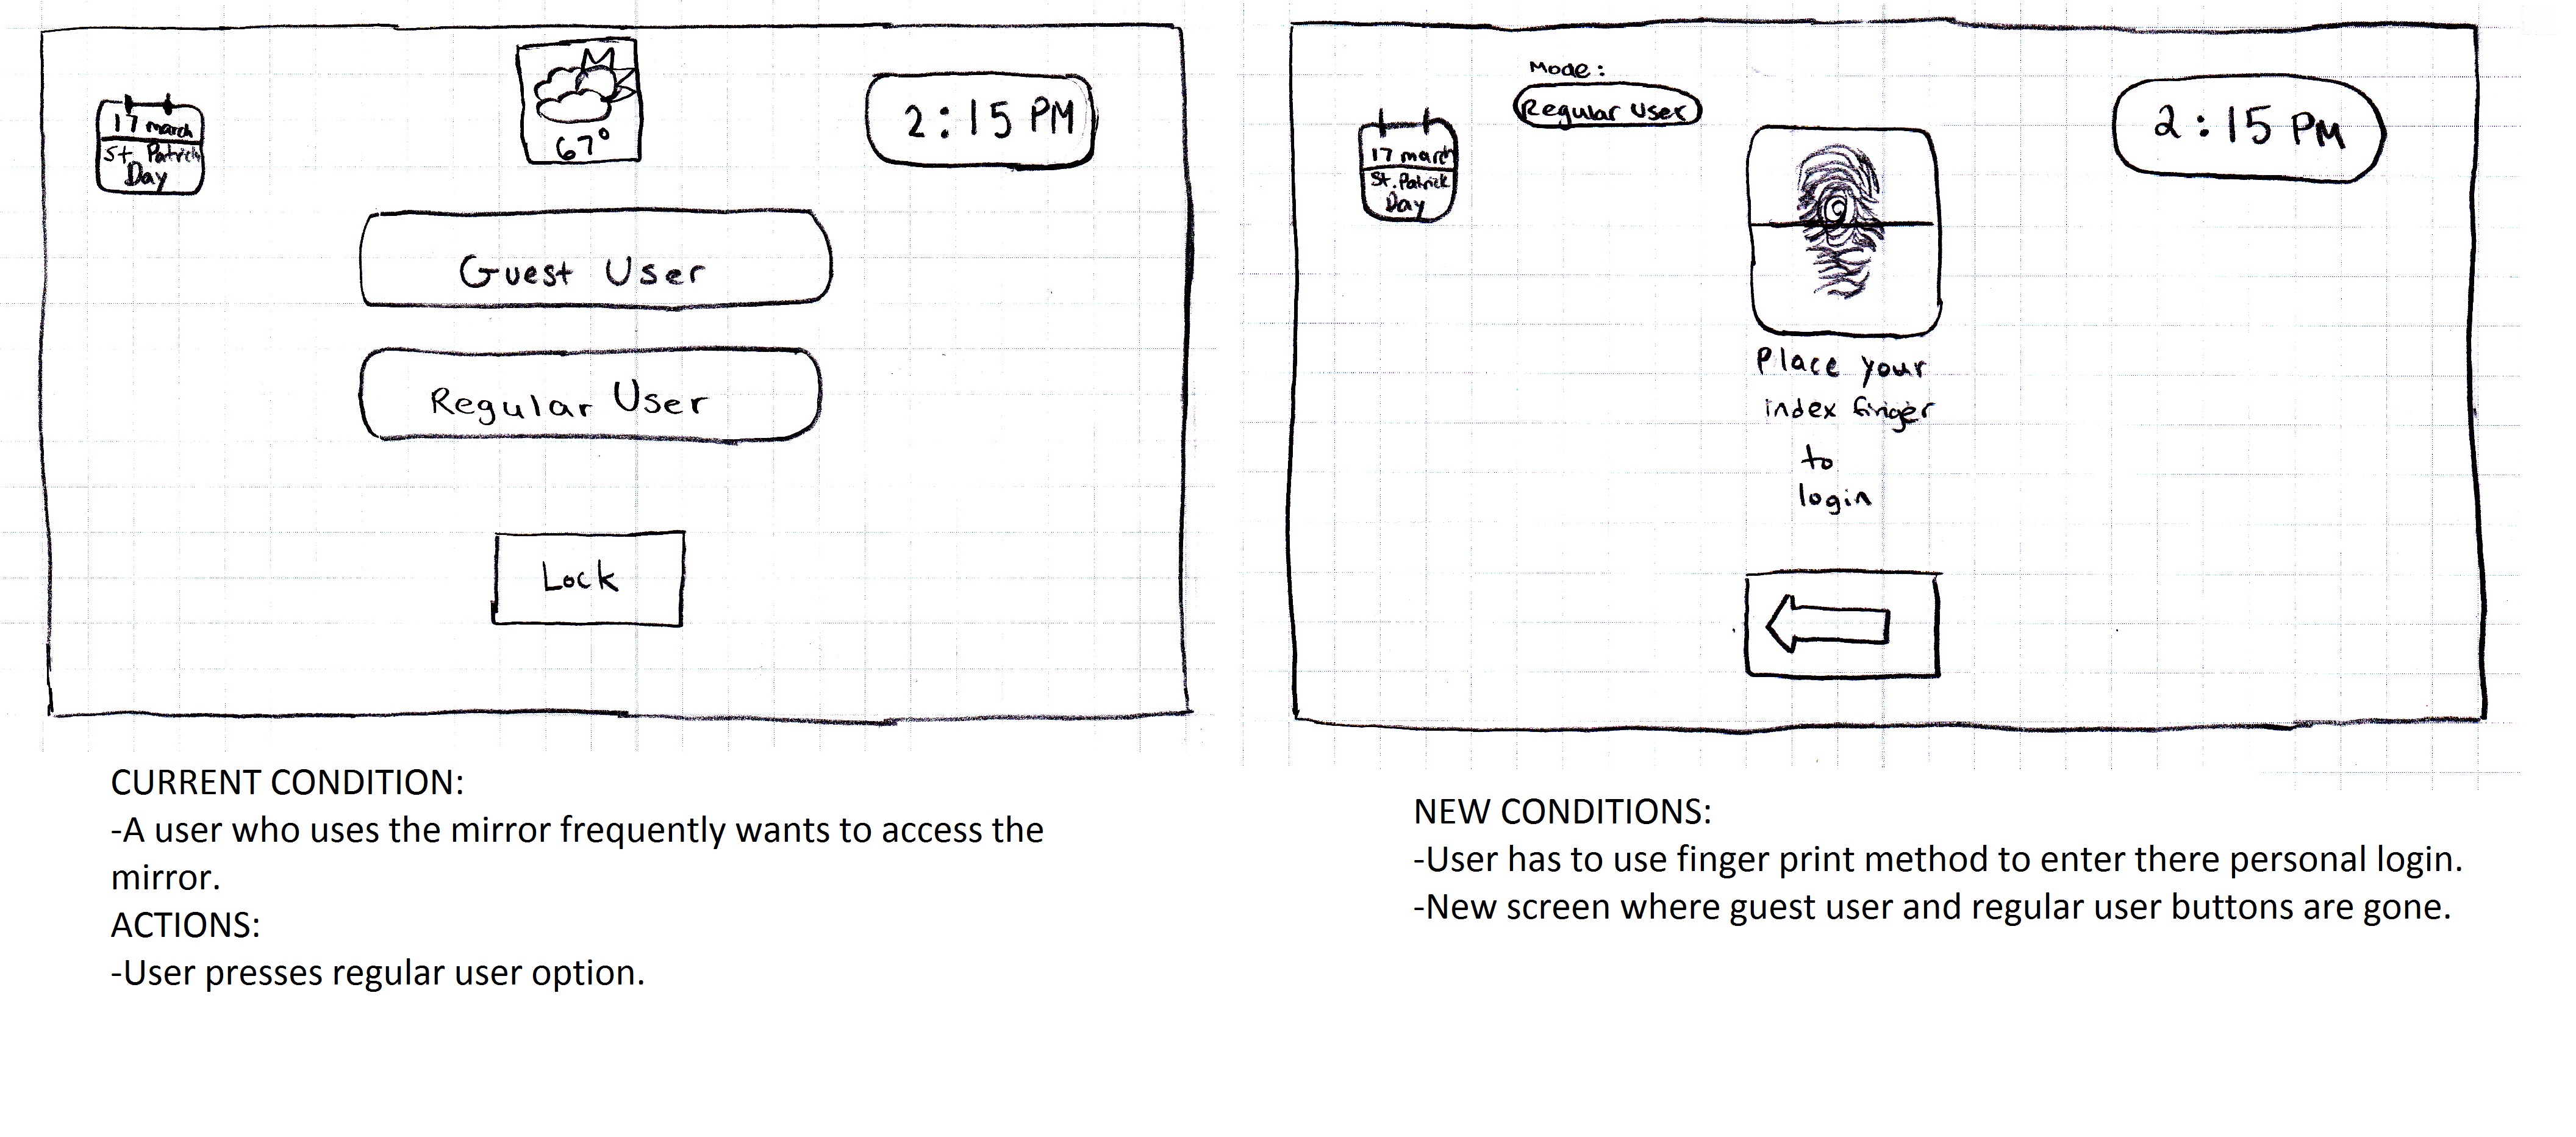 17 march
St. Patrick
Day
67°
2:15 PM
Guest User
Regular User
Lock
CURRENT CONDITION:
-A user who uses the mirror frequently wants to access the
mirror.
ACTIONS:
-User presses regular user option.
Mode:
Regular User
17 march
St. Patrick
Day
2:15 PM
Place your
index finger
to
login
NEW CONDITIONS:
-User has to use finger print method to enter there personal login.
-New screen where guest user and regular user buttons are gone.